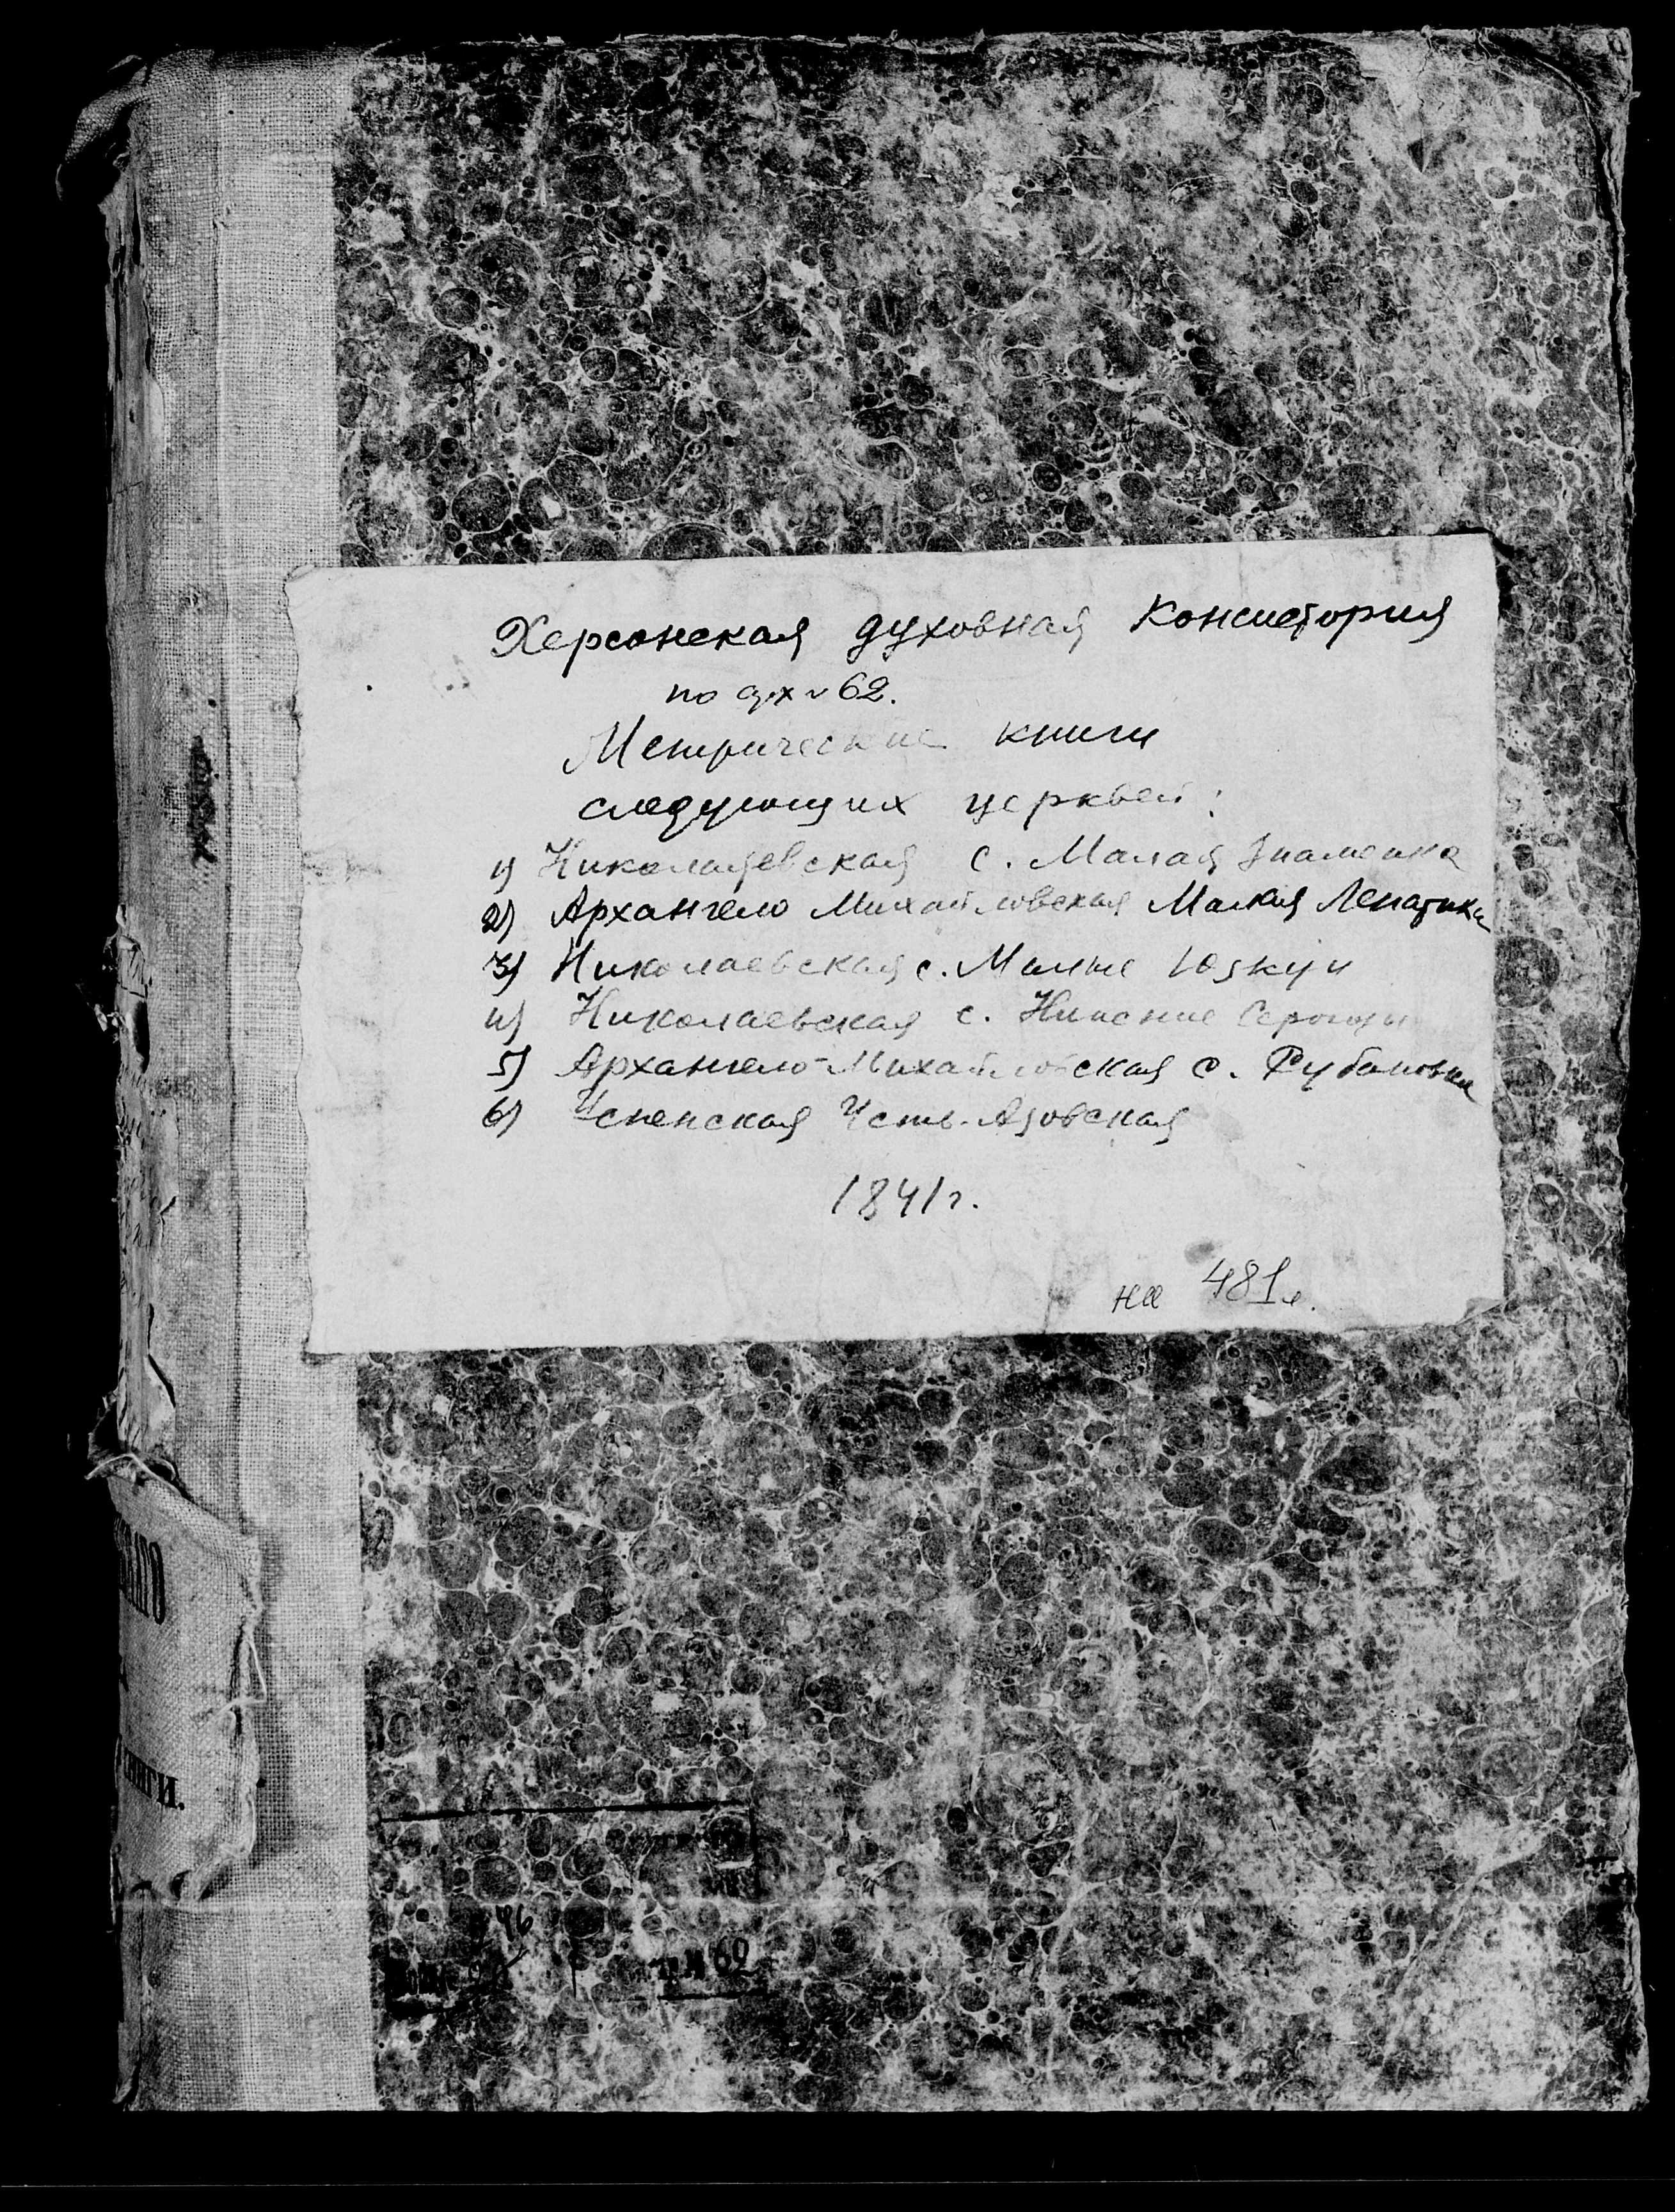 Херсонская духовная Консистория
по арх № 62.
Метрические книги
следующих церквей:
1) Николаевская с. Малая Знаменка
2) Архангело Михайловская Малая Лепатиха
3) Николаевская с. Малые Юзкуи
4) Николаевская с. Нижние Серогозы
5) Архангело-Михайловская с. Рубановка
6) Успенская Усть-Азовская
1841 г.
на 481 л.
КНИГИ.
46
62